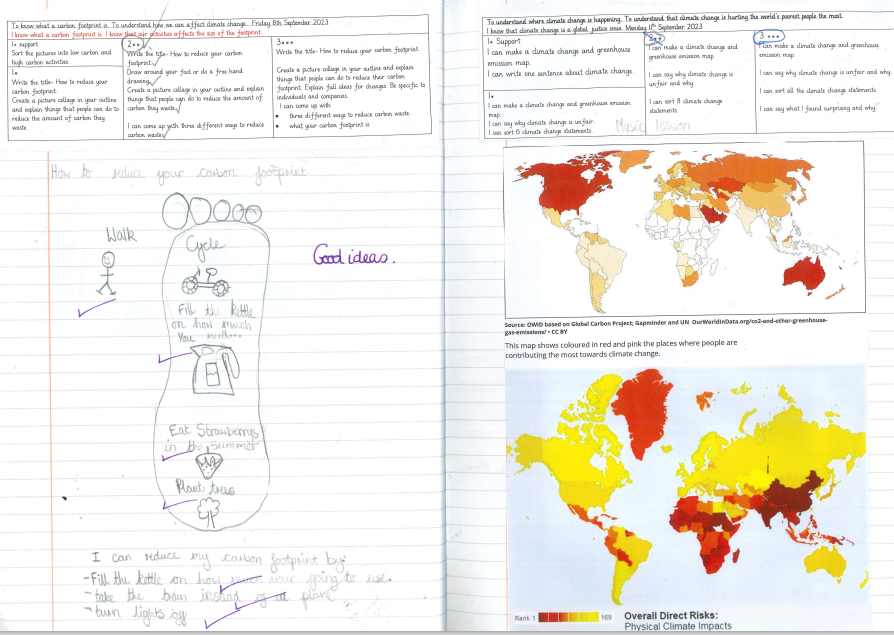 To know what a carbon footprint is. To understand how we can affect climate change. Friday 8th September 2023
I know what a carbon footprint is. I know that our activities affects the size of the footprint.
1* support
Sort the pictures into low carbon and
high carbon activities.
1*
Write the title- How to reduce your
carbon footprint.
Create a picture collage in your outline
and explain things that people can do to
reduce the amount of carbon they
waste.
2**
Write the title- How to reduce your carbon
footprint.
Draw around your foot or do a free hand
drawing.
Create a picture collage in your outline and explain
things that people can do to reduce the amount of
carbon they waste.
I can come up with three different ways to reduce
carbon waste.
3***
Write the title- How to reduce your carbon footprint.
Create a picture collage in your outline and explain
things that people can do to reduce their carbon
footprint. Explain full ideas for changes. Be specific to
individuals and companies.
I can come up with
• three different ways to reduce carbon waste
• what your carbon footprint is
How to reduce your carbon footprint
Walk
Cycle
Good ideas.
Fill the kettle
on how much
You
Eat Strawberrys
in the summer
Plant trees
I can reduce my carbon footprint by:
-Fill the kettle on how much your going to use.
-take the train instead of a plane
-turn lights
To understand where climate change is happening. To understand that climate change is hurting the world's poorest people the most.
I know that climate change is a global justice issue. Monday 11th September 2023
1* Support
I can make a climate change and greenhouse
emission map.
I can write one sentence about climate change.
1*
I can make a climate change and greenhouse emission
map.
I can say why climate change is unfair
I can sort 6 climate change statements.
2**
I can make a climate change and
greenhouse emission map
I can say why climate change is
unfair and why.
I can sort 8 climate change
statements.
3 ***
I can make a climate change and greenhouse emission
map
I can say why climate change is unfair and why.
I can sort all the climate change statements.
I can say what I found surprising and why.
Music lesson
Source: OWID based on Global Carbon Project; Gapminder and UN OurWorldInData.org/co2-and-other-greenhouse-
gas-emissions/ • CC BY
This map shows coloured in red and pink the places where people are
contributing the most towards climate change.
Rank 1 169
Overall Direct Risks:
Physical Climate Impacts